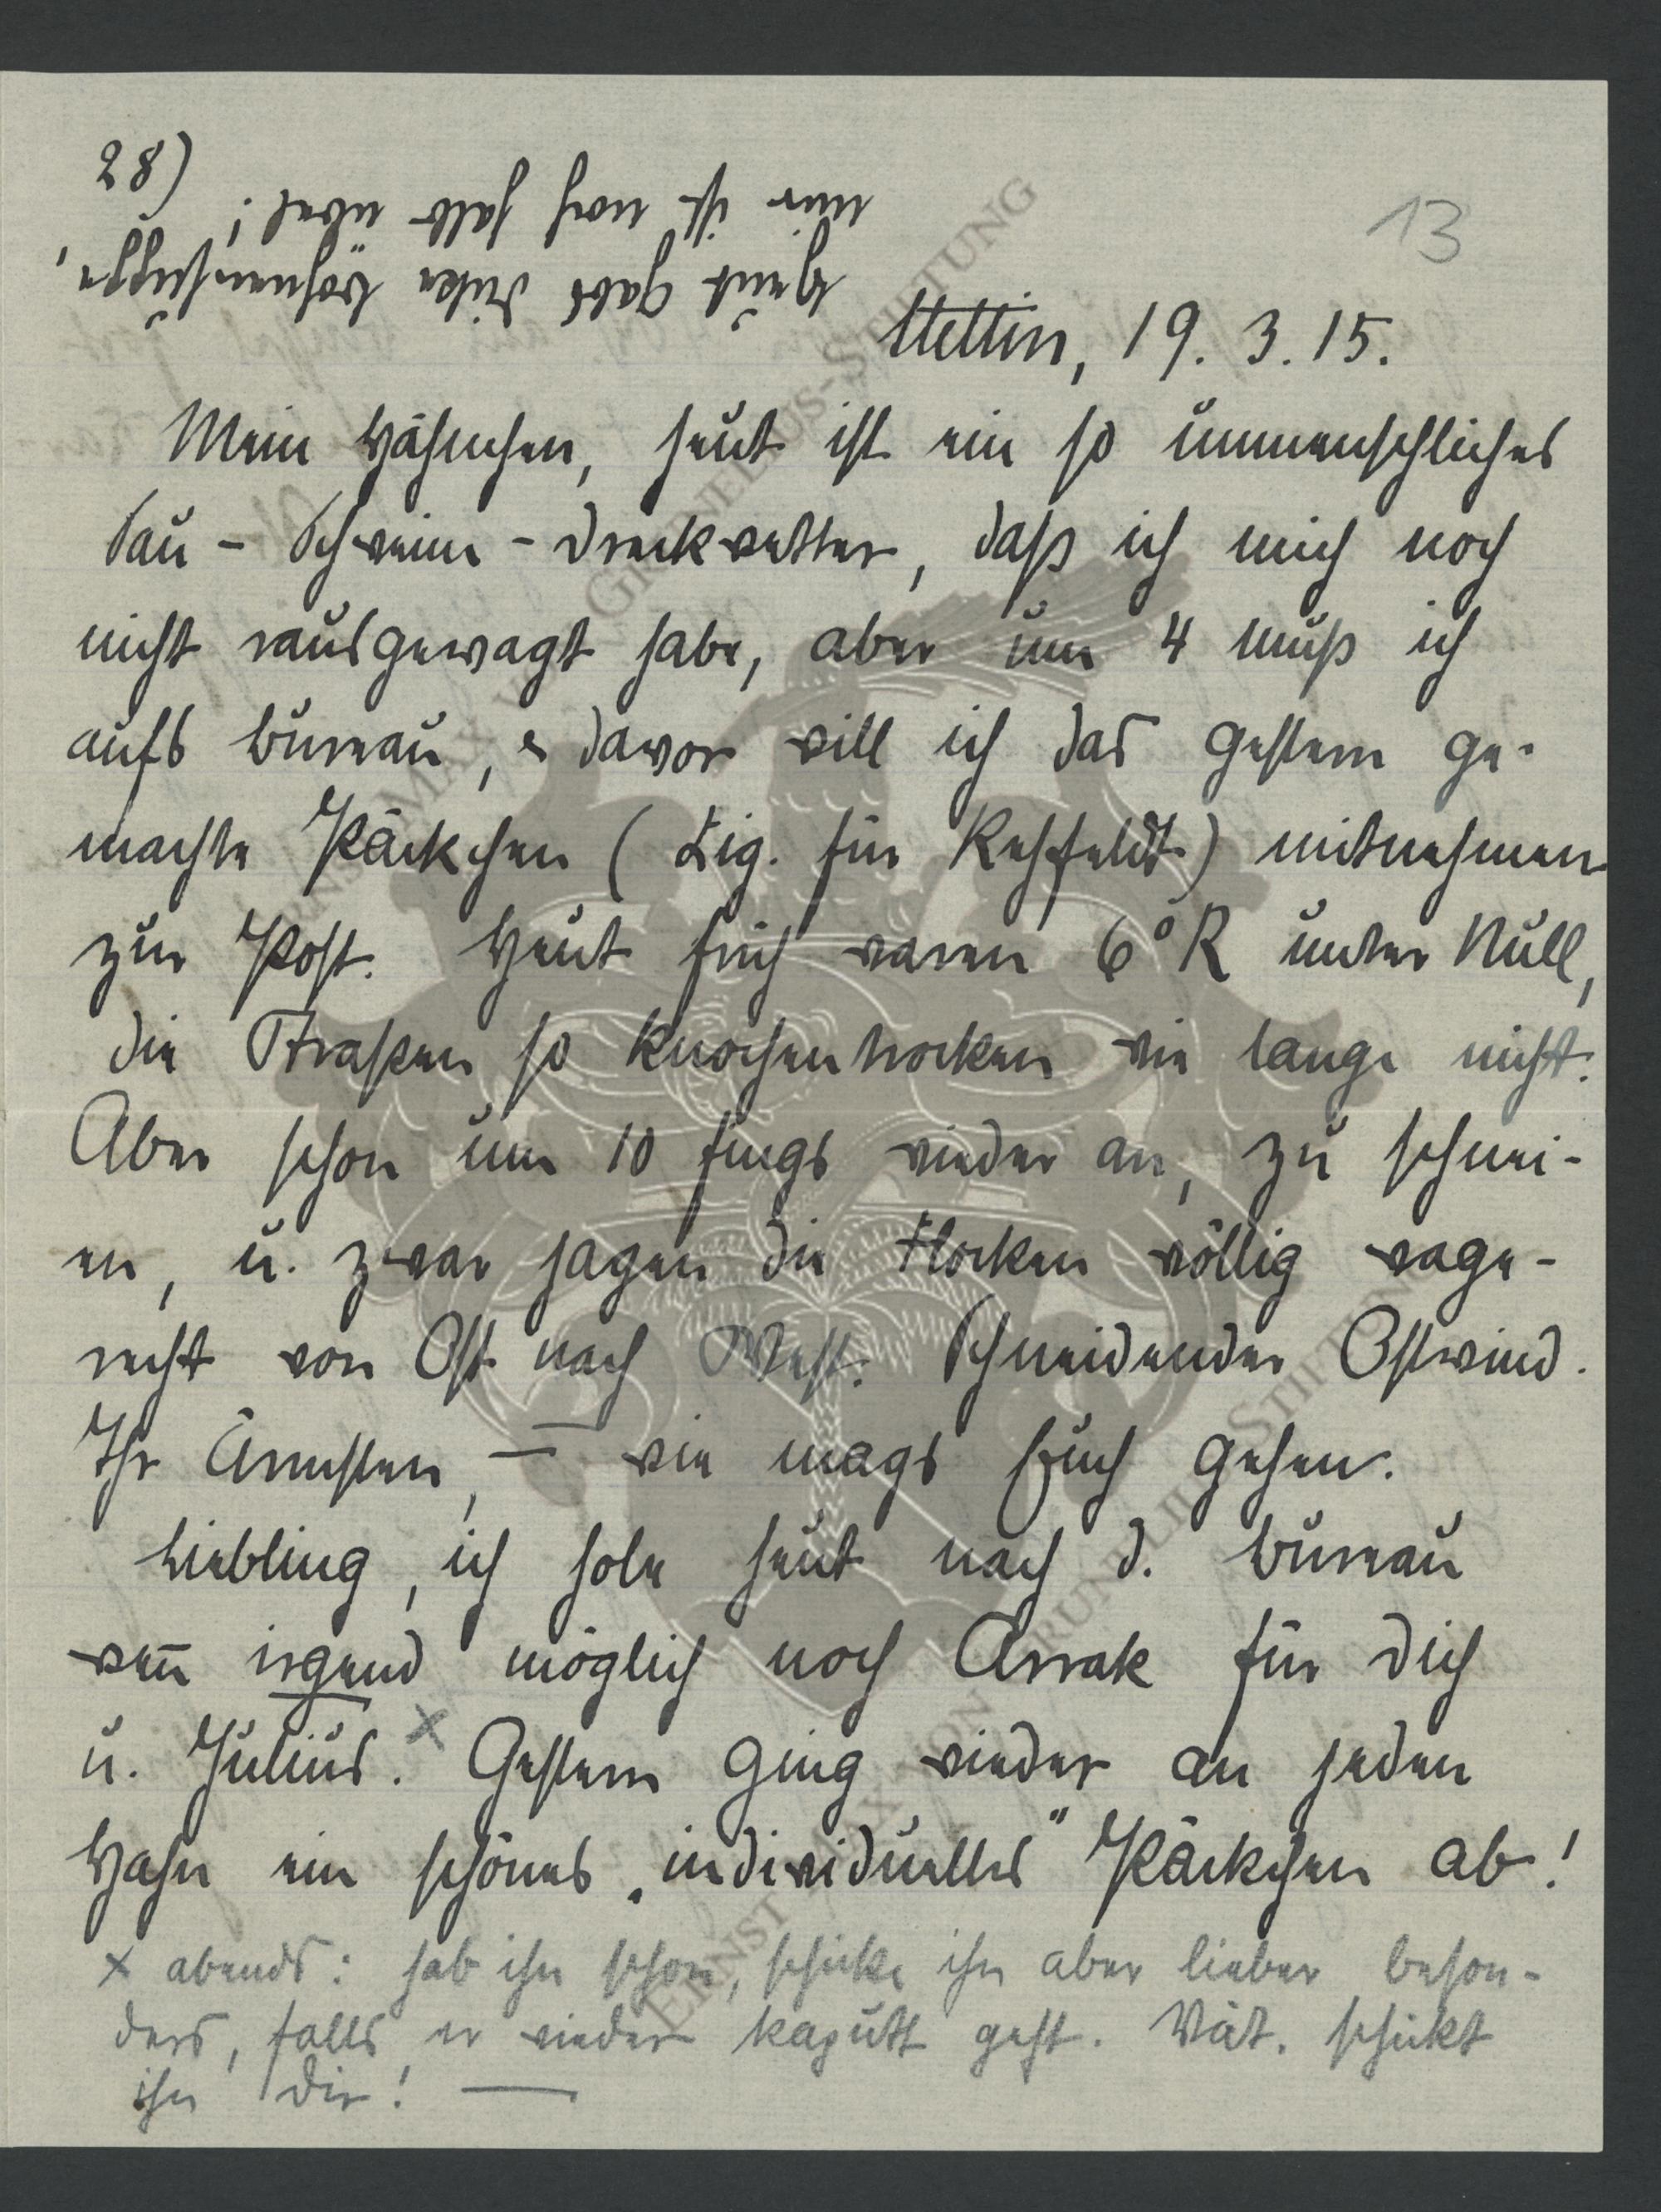 28)
Heut gabs dicke Bohnensuppe,
mir ist noch halb übel!
13
Stettin, 19. 3. 15.
Mein Hähnchen, heut ist ein so unmenschliches
Sau - Schweine - Dreckwetter, daß ich mich noch
nicht rausgewagt habe, aber um 4 muß ich
aufs Bureau, & davor will ich das gestern ge-
machte Päckchen (Zig. für Rehfeldt) mitnehmen
zur Post. Heut früh waren 6° R unter Null,
die Straßen so knochentrocken wie lange nicht.
Aber schon um 10 fings wieder an, zu schnei-
en, u. zwar jagen die Flocken völlig wage-
recht von Ost nach West. Schneidender Ostwind.
Ihr Ärmsten, — wie mags Euch gehen.
Liebling, ich hole heut nach d. Bureau
wenn irgend möglich noch Arrak für Dich
u. Julius. x Gestern ging wieder an jeden
Hahn ein schönes „individuelles" Päckchen ab!
x abends: hab ihn schon, schicke ihn aber lieber beson-
ders, falls er wieder kaputt geht. Vät. schickt
ihn Dir! —
ERNST MAX VON GRUNELIUS-STIFTUNG
ERNST MAX VON GRUNELIUS-STIFTUNG